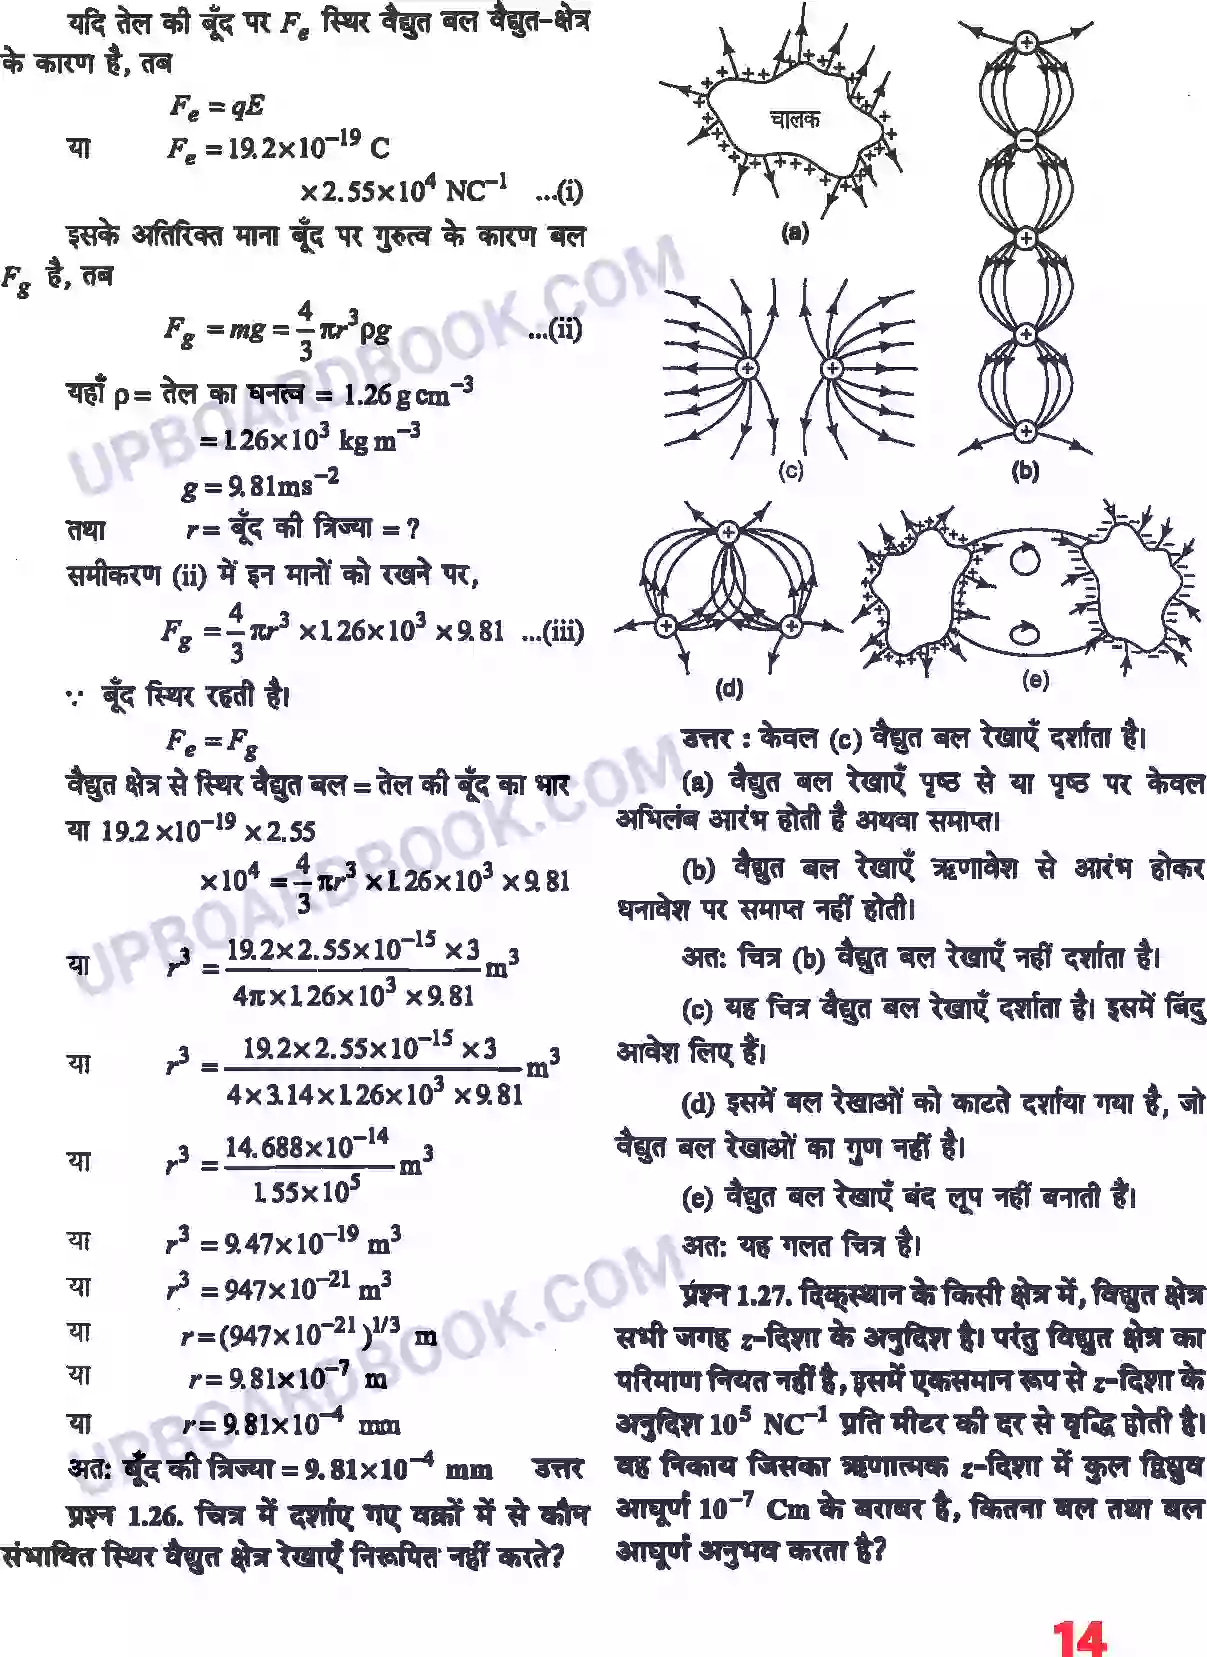 यदि तेल की बूँद पर Fₑ स्थिर वैद्युत बल वैद्युत-क्षेत्र
के कारण है, तब
Fₑ = qE
या Fₑ = 19.2×10⁻¹⁹ C
×2.55×10⁴ NC⁻¹ ...(i)
इसके अतिरिक्त माना बूँद पर गुरुत्व के कारण बल
F_g है, तब
F_g = mg = 4/3 πr³ρg ...(ii)
यहाँ ρ = तेल का घनत्व = 1.26 g cm⁻³
= 1.26×10³ kg m⁻³
g = 9.81ms⁻²
तथा r = बूँद की त्रिज्या = ?
समीकरण (ii) में इन मानों को रखने पर,
F_g = 4/3 πr³ ×1.26×10³ ×9.81 ...(iii)
∵ बूँद स्थिर रहती है।
Fₑ = F_g
वैद्युत क्षेत्र से स्थिर वैद्युत बल = तेल की बूँद का भार
या 19.2×10⁻¹⁹ ×2.55
×10⁴ = 4/3 πr³ ×1.26×10³ ×9.81
या r³ = (19.2×2.55×10⁻¹⁵ ×3)/(4π×1.26×10³ ×9.81) m³
या r³ = (19.2×2.55×10⁻¹⁵ ×3)/(4×3.14×1.26×10³ ×9.81) m³
या r³ = (14.688×10⁻¹⁴)/(1.55×10⁵) m³
या r³ = 9.47×10⁻¹⁹ m³
या r³ = 947×10⁻²¹ m³
या r = (947×10⁻²¹)^1/3 m
या r = 9.81×10⁻⁷ m
या r = 9.81×10⁻⁴ mm
अत: बूँद की त्रिज्या = 9.81×10⁻⁴ mm उत्तर
प्रश्न 1.26. चित्र में दर्शाए गए वक्रों में से कौन
संभावित स्थिर वैद्युत क्षेत्र रेखाएँ निरूपित नहीं करते?
चालक
(a)
(b)
(c)
(d)
(e)
उत्तर : केवल (c) वैद्युत बल रेखाएँ दर्शाता है।
(a) वैद्युत बल रेखाएँ पृष्ठ से या पृष्ठ पर केवल
अभिलंब आरंभ होती है अथवा समाप्त।
(b) वैद्युत बल रेखाएँ ऋणावेश से आरंभ होकर
धनावेश पर समाप्त नहीं होती।
अत: चित्र (b) वैद्युत बल रेखाएँ नहीं दर्शाता है।
(c) यह चित्र वैद्युत बल रेखाएँ दर्शाता है। इसमें बिंदु
आवेश लिए हैं।
(d) इसमें बल रेखाओं को काटते दर्शाया गया है, जो
वैद्युत बल रेखाओं का गुण नहीं है।
(e) वैद्युत बल रेखाएँ बंद लूप नहीं बनाती हैं।
अत: यह गलत चित्र है।
प्रश्न 1.27. दिक्स्थान के किसी क्षेत्र में, विद्युत क्षेत्र
सभी जगह z-दिशा के अनुदिश है। परंतु विद्युत क्षेत्र का
परिमाण नियत नहीं है, इसमें एकसमान रूप से z-दिशा के
अनुदिश 10⁵ NC⁻¹ प्रति मीटर की दर से वृद्धि होती है।
वह निकाय जिसका ऋणात्मक z-दिशा में कुल द्विध्रुव
आघूर्ण 10⁻⁷ Cm के बराबर है, कितना बल तथा बल
आघूर्ण अनुभव करता है?
14
UPBOARDBOOK.COM
UPBOARDBOOK.COM
UPBOARDBOOK.COM